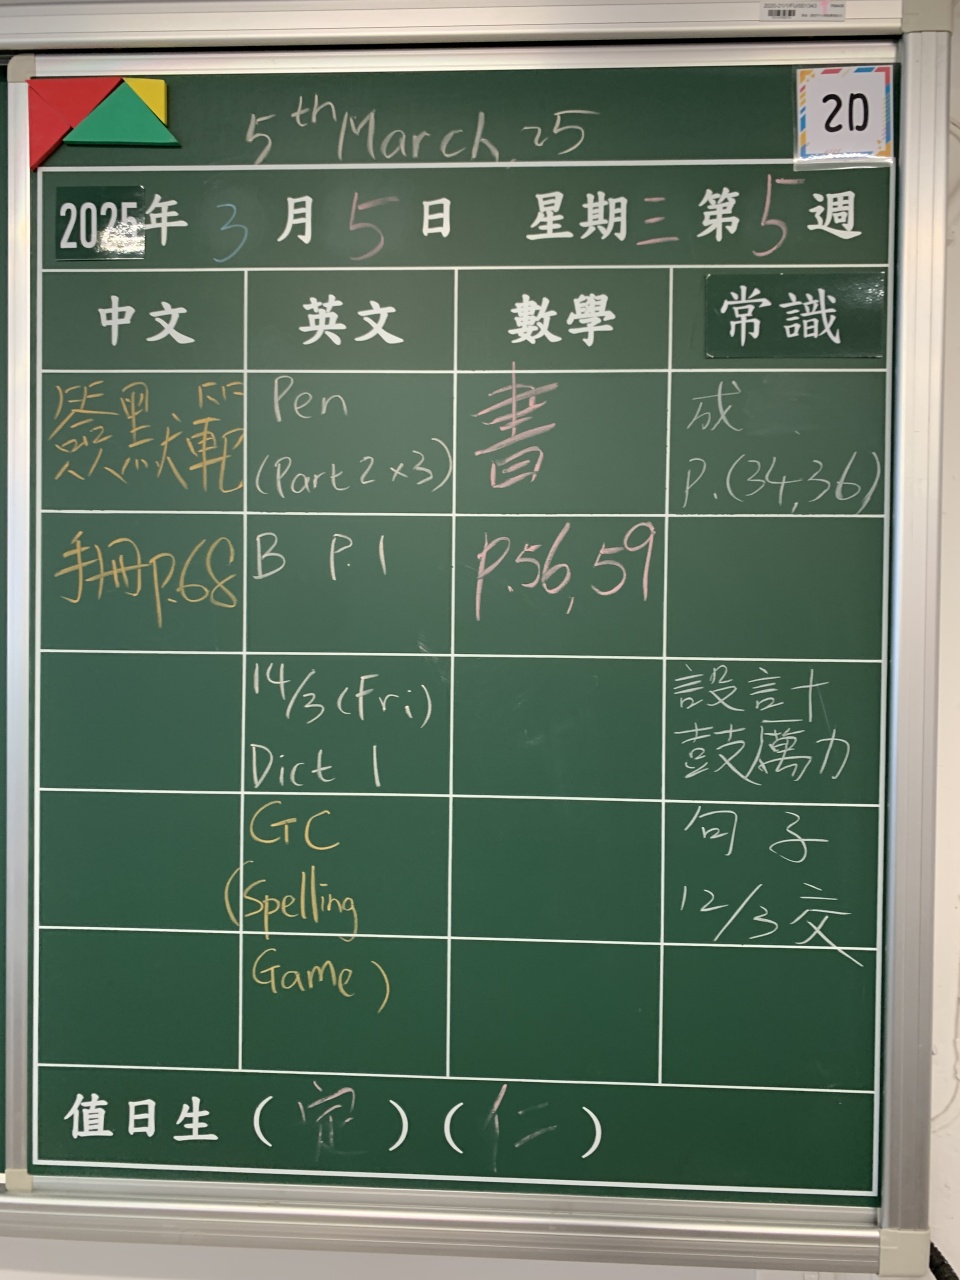 5th March, 25
2D
2025年 3 月 5 日 星期三 第 5 週
中文 英文 數學 常識
簽默獻範
Pen
(Part 2 x 3)
書
成
P.(34,36)
手冊P.68
B P.1
P.56, 59
14/3 (Fri)
Dict 1
設計
鼓勵
GC
(Spelling
句子
12/3 交
Game)
值日生 (定) (仁)